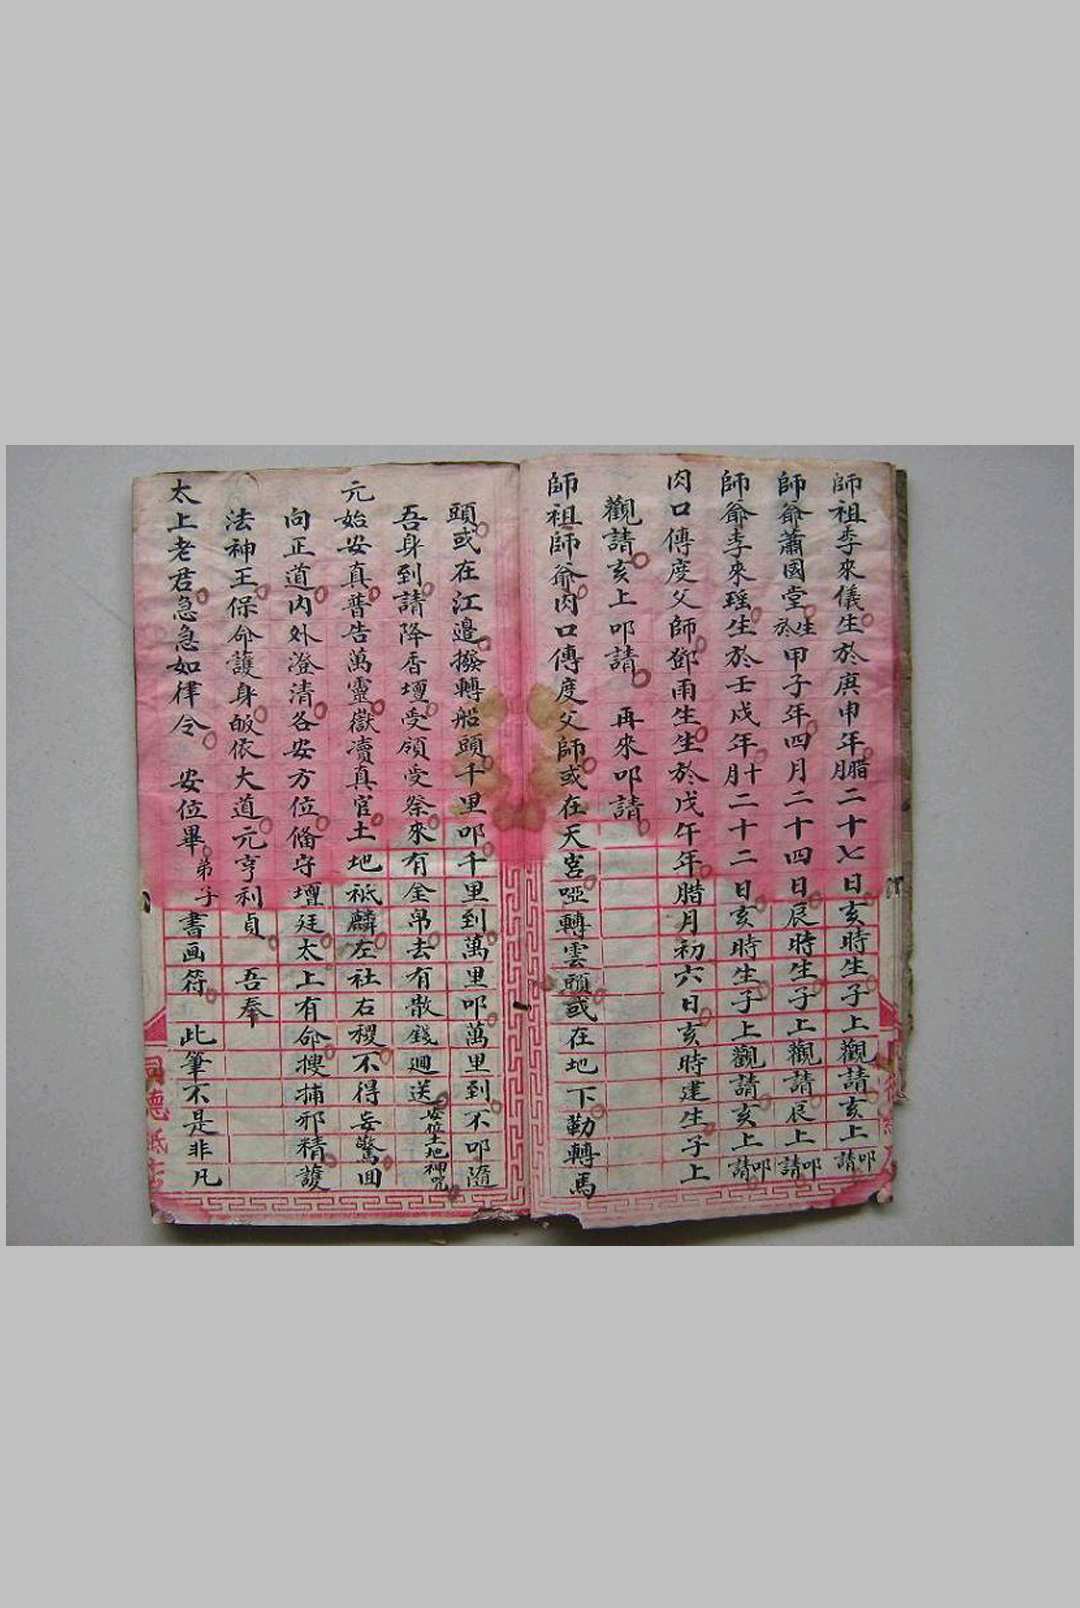 師祖李來儀生於庚申年腊月二十七日亥時生子上觀請亥上叩請
師爺蕭國堂生於甲子年四月二十四日辰時生子上觀請辰上叩請
師爺李來瑶生於壬戌年十月二十二日亥時生子上觀請亥上叩請
肉口傳度父師鄧雨生生於戊午年腊月初六日亥時建生子上
觀請亥上叩請 再來叩請
師祖師爺肉口傳度父師或在天宮啞轉雲頭或在地下勒轉馬
頭或在江邉撥轉船頭千里叩千里到萬里叩萬里到不叩隨
吾身到請降香壇受領受祭來有金帛去有散錢迴送 安位土地神咒
元始安真普告萬靈嶽瀆真官土地祇麟左社右稷不得妄驚回
向正道内外澄清各安方位俻守壇廷太上有命搜捕邪精護
法神王保命護身皈依大道元亨利貞 吾奉
太上老君急急如律令 安位畢弟子書画符 此筆不是非凡
同德紙